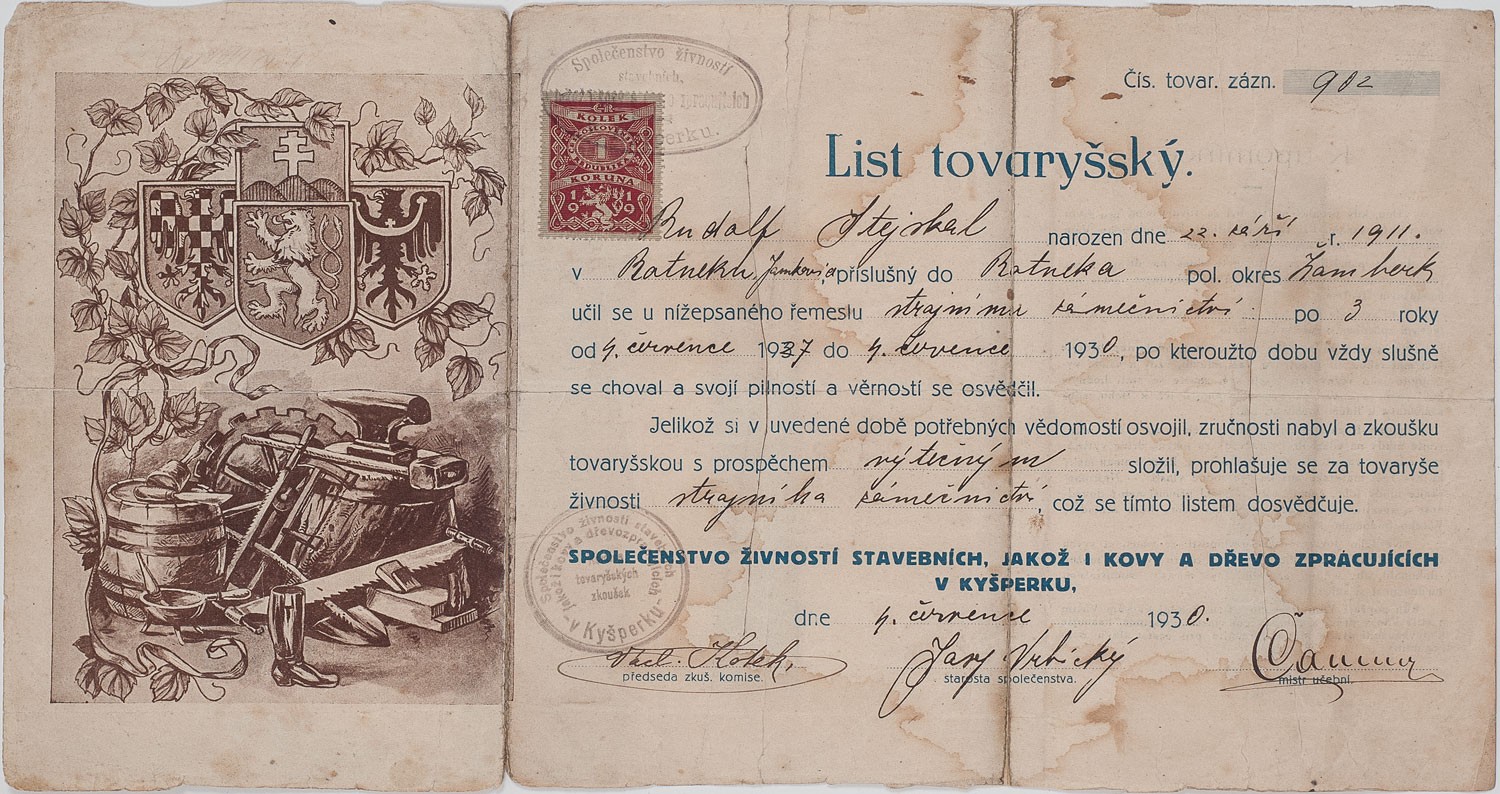 Čís. tovar. zázn. 982
Společenstvo živností
stavebních,
zpracujících
Kyšperku.
ČR
KOLEK
1
KORUNA
19 19
List tovaryšský.
Rudolf Stejskal narozen dne 22. září r. 1911.
v Ratneku příslušný do Ratneka pol. okres Žamberk
učil se u nížepsaného řemeslu strojnímu zámečnictví po 3 roky
od 4. července 1927 do 4. července 1930, po kteroužto dobu vždy slušně
se choval a svojí pilností a věrností se osvědčil.
Jelikož si v uvedené době potřebných vědomostí osvojil, zručnosti nabyl a zkoušku
tovaryšskou s prospěchem výtečným složil, prohlašuje se za tovaryše
živnosti strojníha zámečnictví, což se tímto listem dosvědčuje.
Společenstvo živností stavebních
jakožto i kovo a dřevozpracujících
tovaryšských
zkoušek
v Kyšperku
SPOLEČENSTVO ŽIVNOSTÍ STAVEBNÍCH, JAKOŽ I KOVY A DŘEVO ZPRACUJÍCÍCH
V KYŠPERKU,
dne 4. července 1930.
Václ. Kotek, Jar Vrbický
předseda zkuš. komise. starosta společenstva. mistr učební.